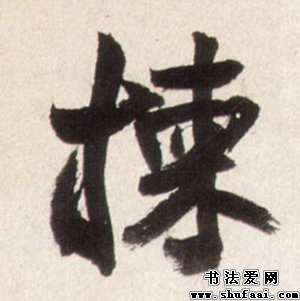 揀
书法爱网
www.shufaai.com